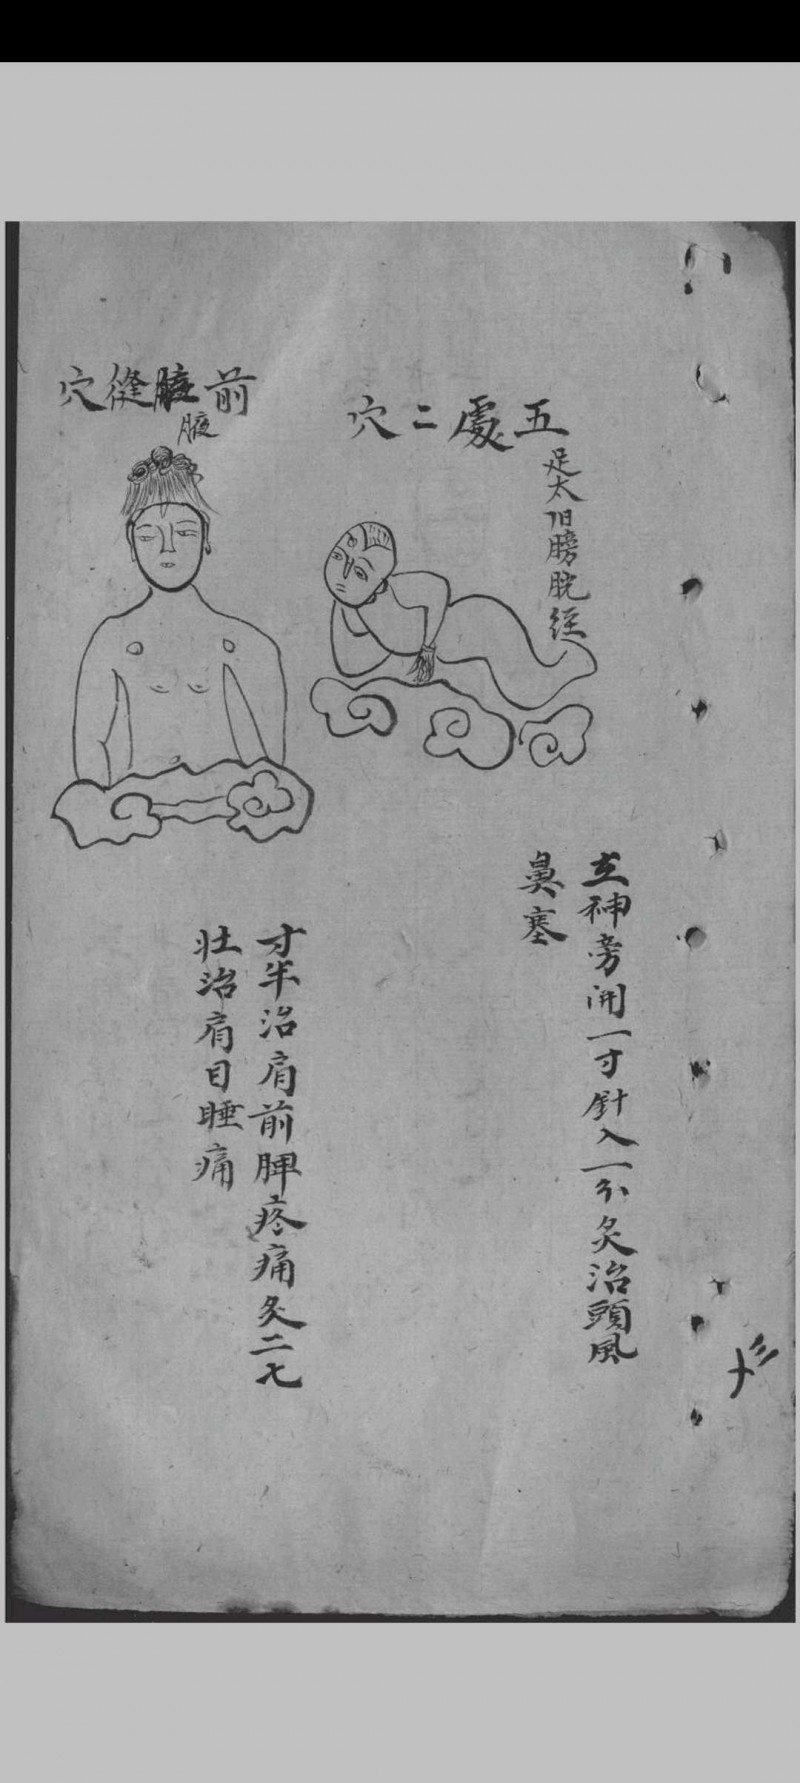 五處二穴
足太阳膀胱經
玄神旁開一寸針入一分灸治頭風
鼻塞
前腋縫穴
腋
寸半治肩前胛疼痛灸二七
壯治肩目睡痛